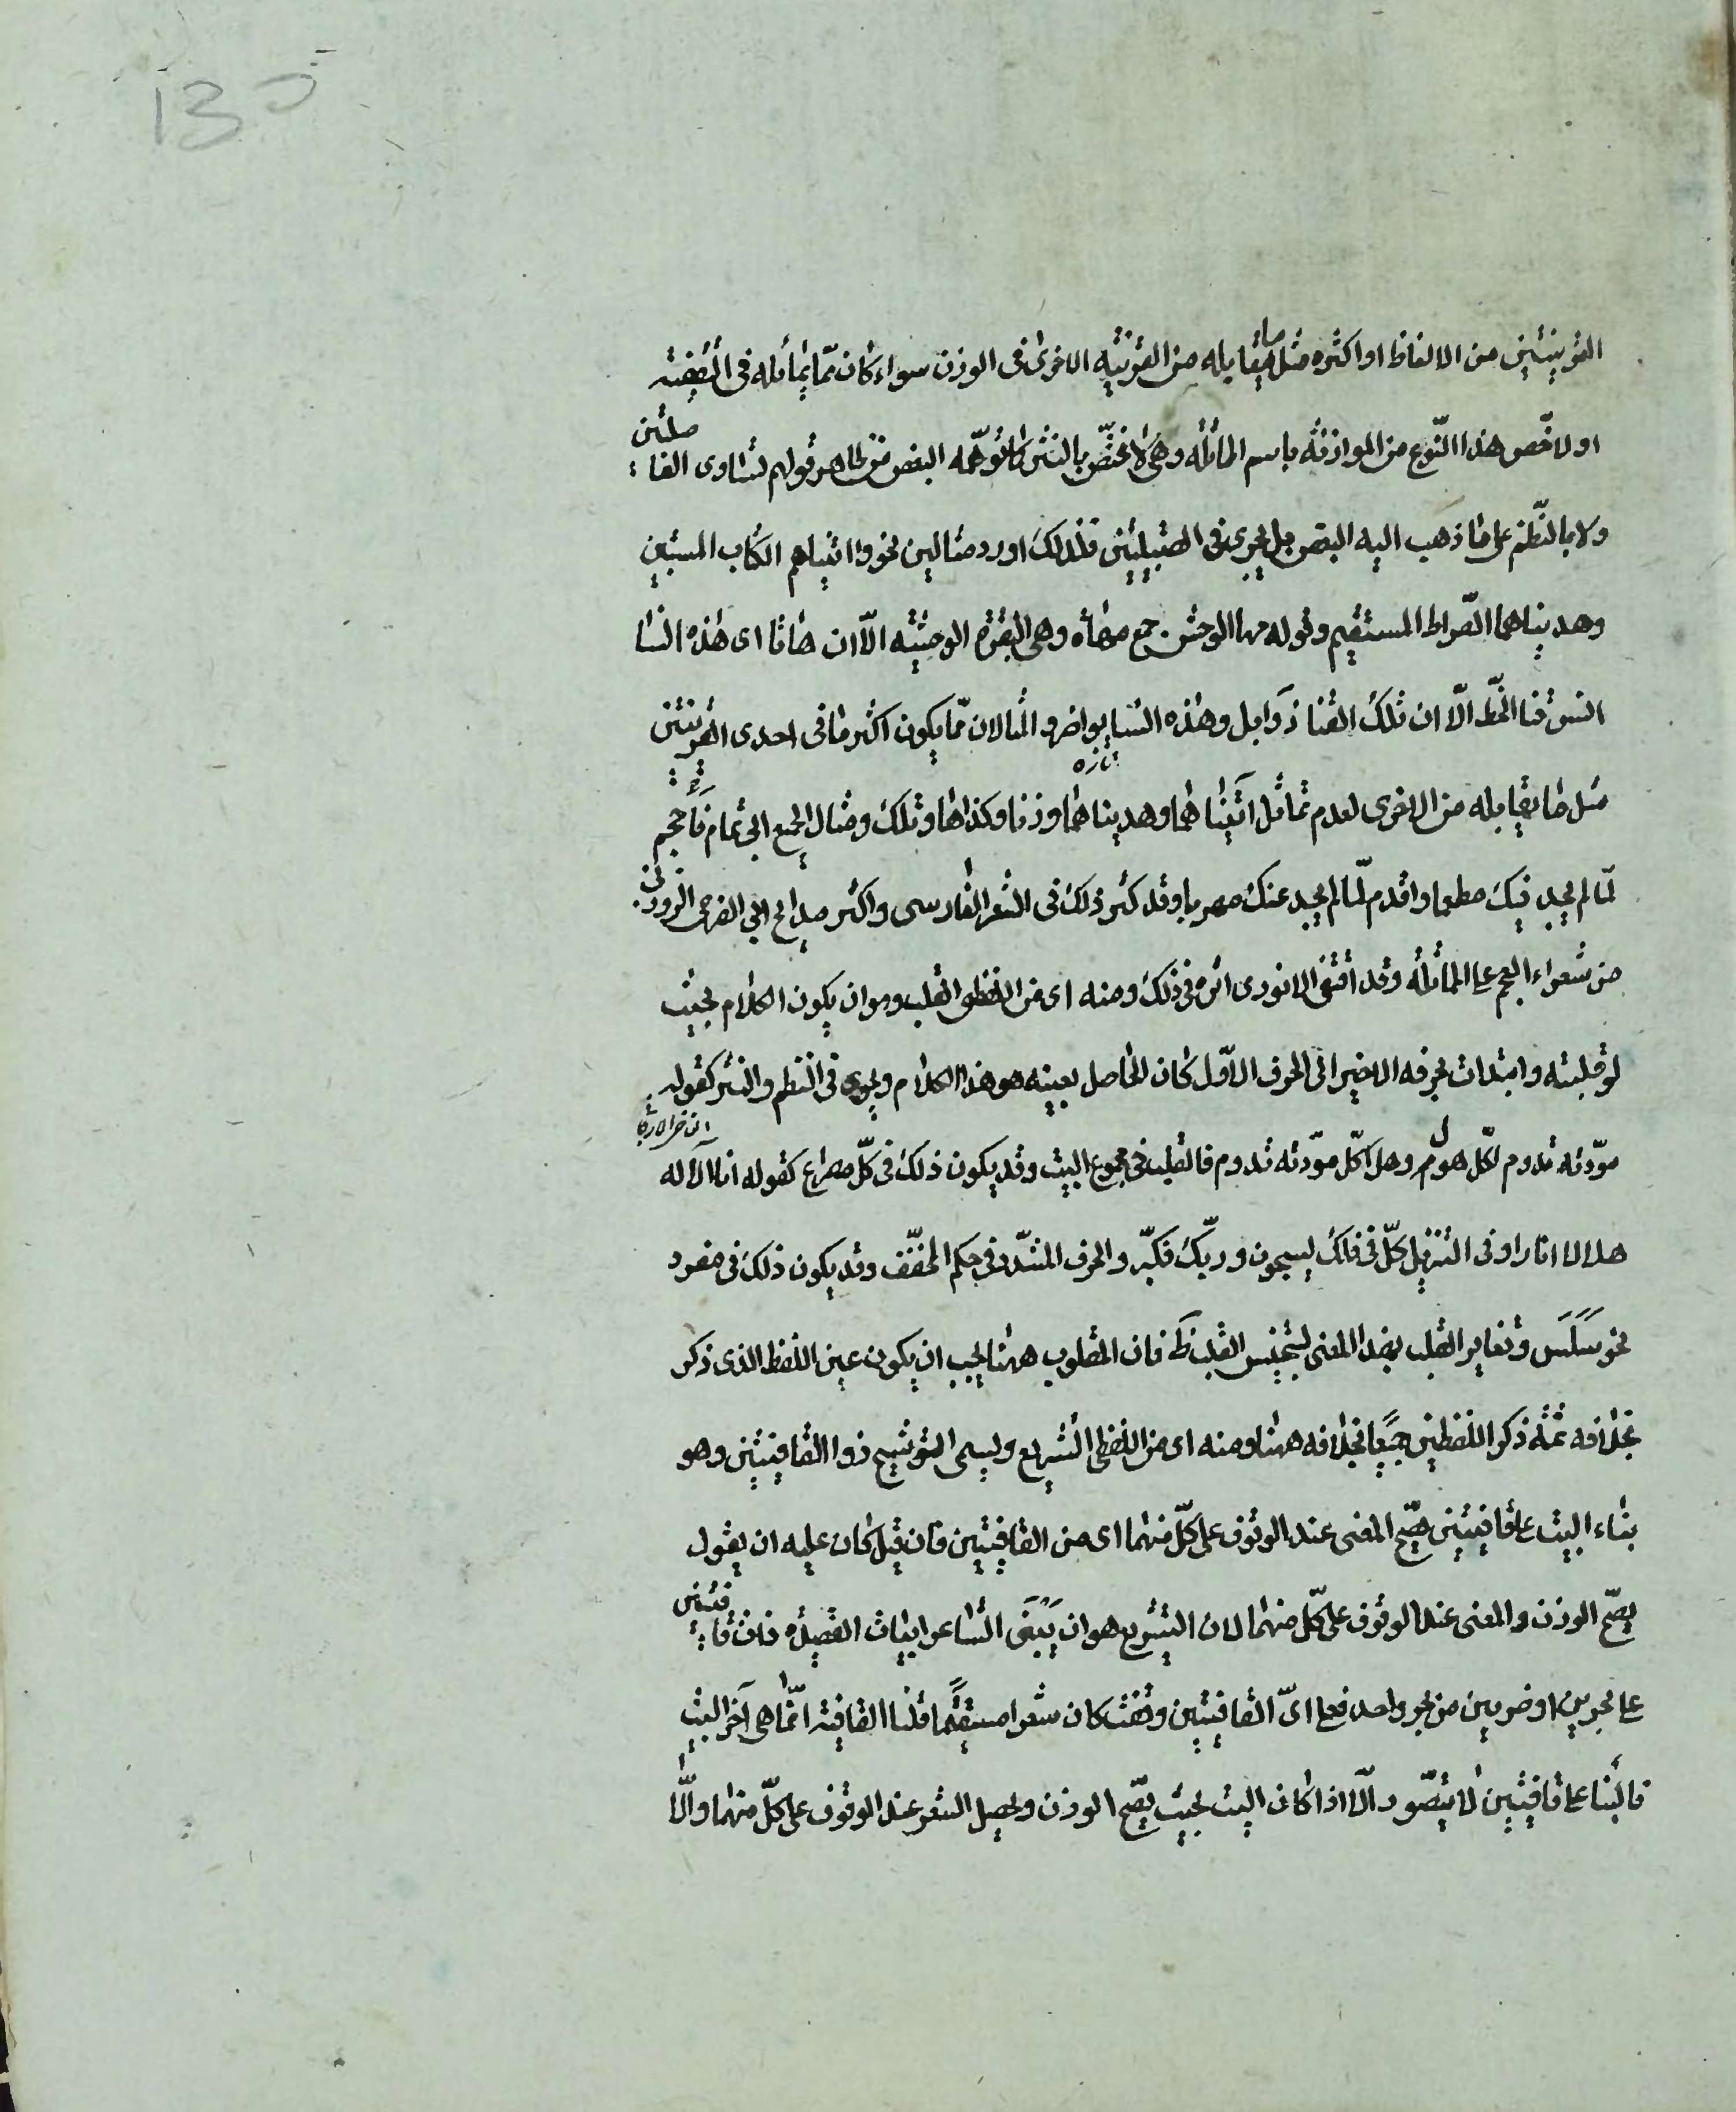 135
القرينتين من الالفاظ او اكثره مثل ما يقابله من القرينة الاخرى فى الوزن سواء كان ممّا يماثله فى التقفية
او لا خصّ هذا النّوع من الموازنة باسم المماثلة وهى لا تختصّ بالنثر كما توهّمه البعض من ظاهر قولهم تساوى الفاصلتين
ولا بالنّظم على ما ذهب اليه البعض بل يجرى فى القبيلتين فلذلك اورد مثالين نحو واتيناهم الكتاب المستبين
وهديناهما الصّراط المستقيم وقوله مها الوحش جمع مهاة وهى البقرة الوحشيّة الّا ان هاتا اى هذه النسا
انس قنا الخطّ الّا ان تلك القنا ذوابل وهذه النسا نواضر والمثالان ممّا يكون اكثر ما فى احدى القرينتين
تازه
مثل ما يقابله من الاخرى لعدم تماثل اتيناهما وهديناهما وزنا وكذا هاتا وتلك ومثال الجميع ابى تمام فاحجم
لمّا لم يجد فيك مطمعا واقدم لمّا لم يجد عنك مهربا وقد كثر ذلك فى الشعر الفارسى واكثر مدايح ابى الفرج الرونى
من شعراء العجم على المماثلة وقد اقتفى الانورى اثره فى ذلك ومنه اى من اللفظى القلب وهو ان يكون الكلام بحيث
لو قلبته وابتدات بحرفه الاخير الى الحرف الاوّل كان الحاصل بعينه هو هذا الكلام ويجرى فى النظم والنثر كقوله
مودّته تدوم لكلّ هول وهل كلّ مودّته تدوم فالقلب فى مجموع البيت وقد يكون ذلك فى كلّ مصراع كقوله انا الاله
هلالا انارا وفى التنزيل كلّ فى فلك يسبحون وربّك فكبّر والحرف المشدّد فى حكم المخفّف وقد يكون ذلك فى مفرد
نحو سَلَس وتغاير القلب بهذا المعنى لتجنيس القلب ظ فان المقلوب ههنا يجب ان يكون عين اللفظ الذى ذكر
بخلافه ثمّة ذكر اللفظين جميعًا بخلافه ههنا ومنه اى من اللفظى التشريع ويسمى التوشيح ذوا القافيتين وهو
بناء البيت على قافيتين يصحّ المعنى عند الوقوف على كلّ منهما اى من القافيتين فان قيل كان عليه ان يقول
يصحّ الوزن والمعنى عند الوقوف على كلّ منهما لان التشريع هو ان يَبْنى الشاعر ابيات القصيدة ذات قافيتين
على بحرين او ضربين من بحر واحد فعلى اىّ القافيتين وقفت كان شعرا مستقيمًا قلنا القافية انّما هى آخر البيت
فالبنا على قافيتين لا يتصّور الّا اذا كان البيت بحيث يصّح الوزن ويحصل الشعر عند الوقوف على كلّ منهما والّا